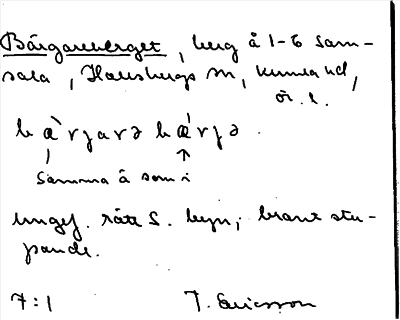 Bärgareberget, berg å 1-6 Sam-
sala, Hallsbergs sn, Kumla hd,
ör. l.
bæ̀rjarə bǽrjə.
Samma å som i
ungef. rätt S. byn; brant stu-
pande.
7:1 J. Ericsson